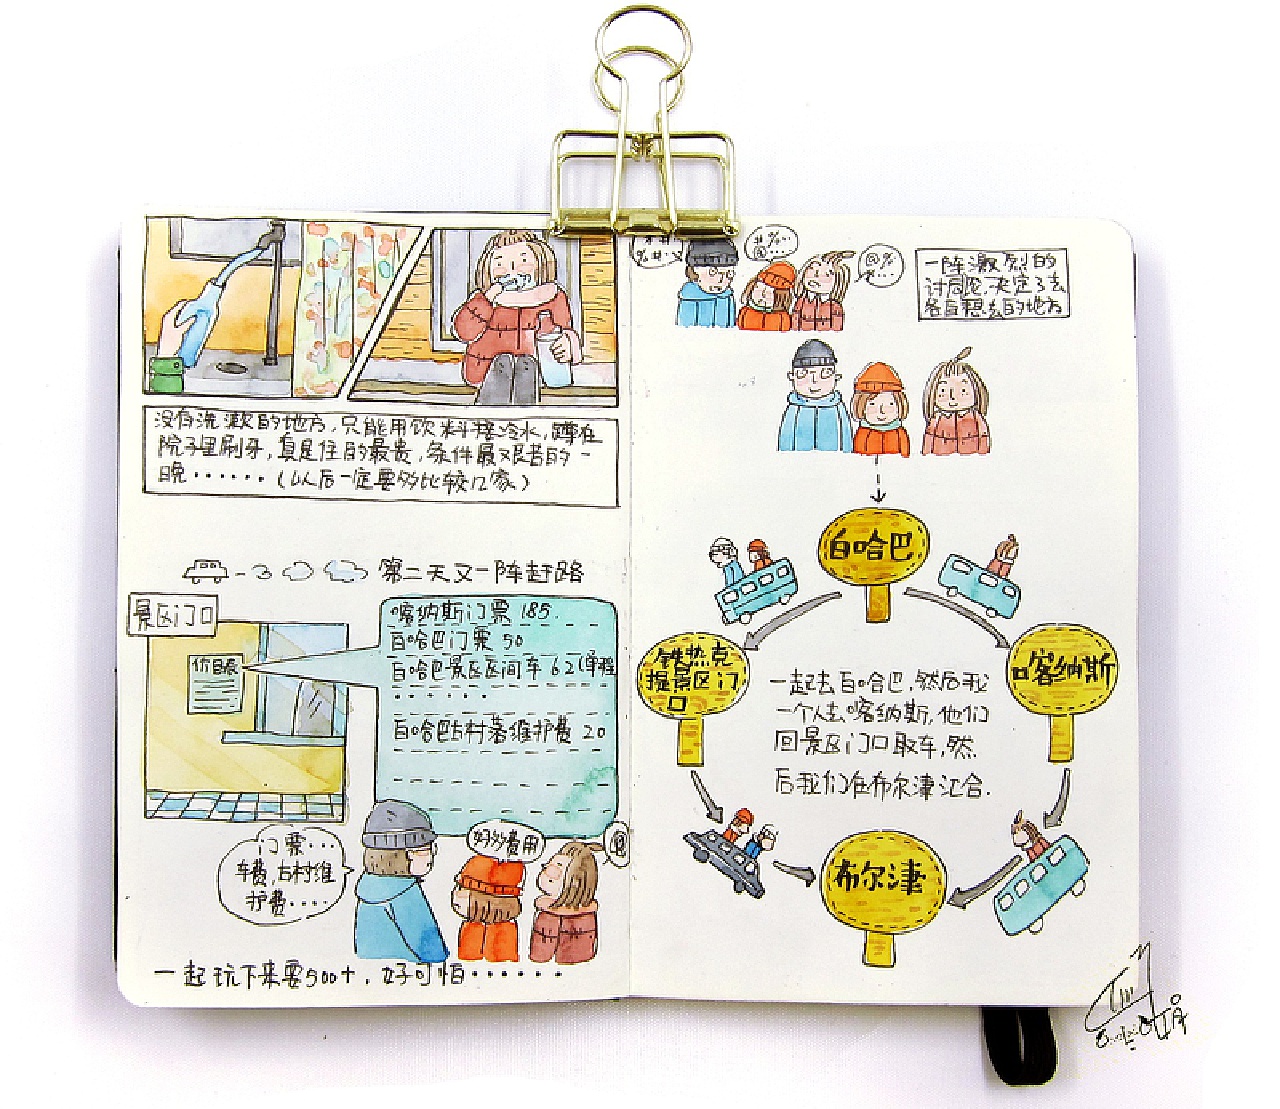 没有洗漱的地方，只能用饮料瓶接冷水，蹲在
院子里刷牙，真是住的最贵，条件最艰苦的一
晚······（以后一定要多比较几家）
第二天又一阵赶路
景区门口
价目表
喀纳斯门票 185
白哈巴门票 50
白哈巴景区区间车 62(单程
······
白哈巴古村落维护费 20
门票···
车费,古村维
护费····
好多费用
一起玩下来要500+，好可怕······
%#·X
#%··
@··
@%
一阵激烈的
讨论后,决定了去
各自想去的地方
白哈巴
铁热克
提景区门
口
喀纳斯
一起去白哈巴,然后我
一个人去喀纳斯,他们
回景区门口取车,然
后我们在布尔津汇合.
布尔津